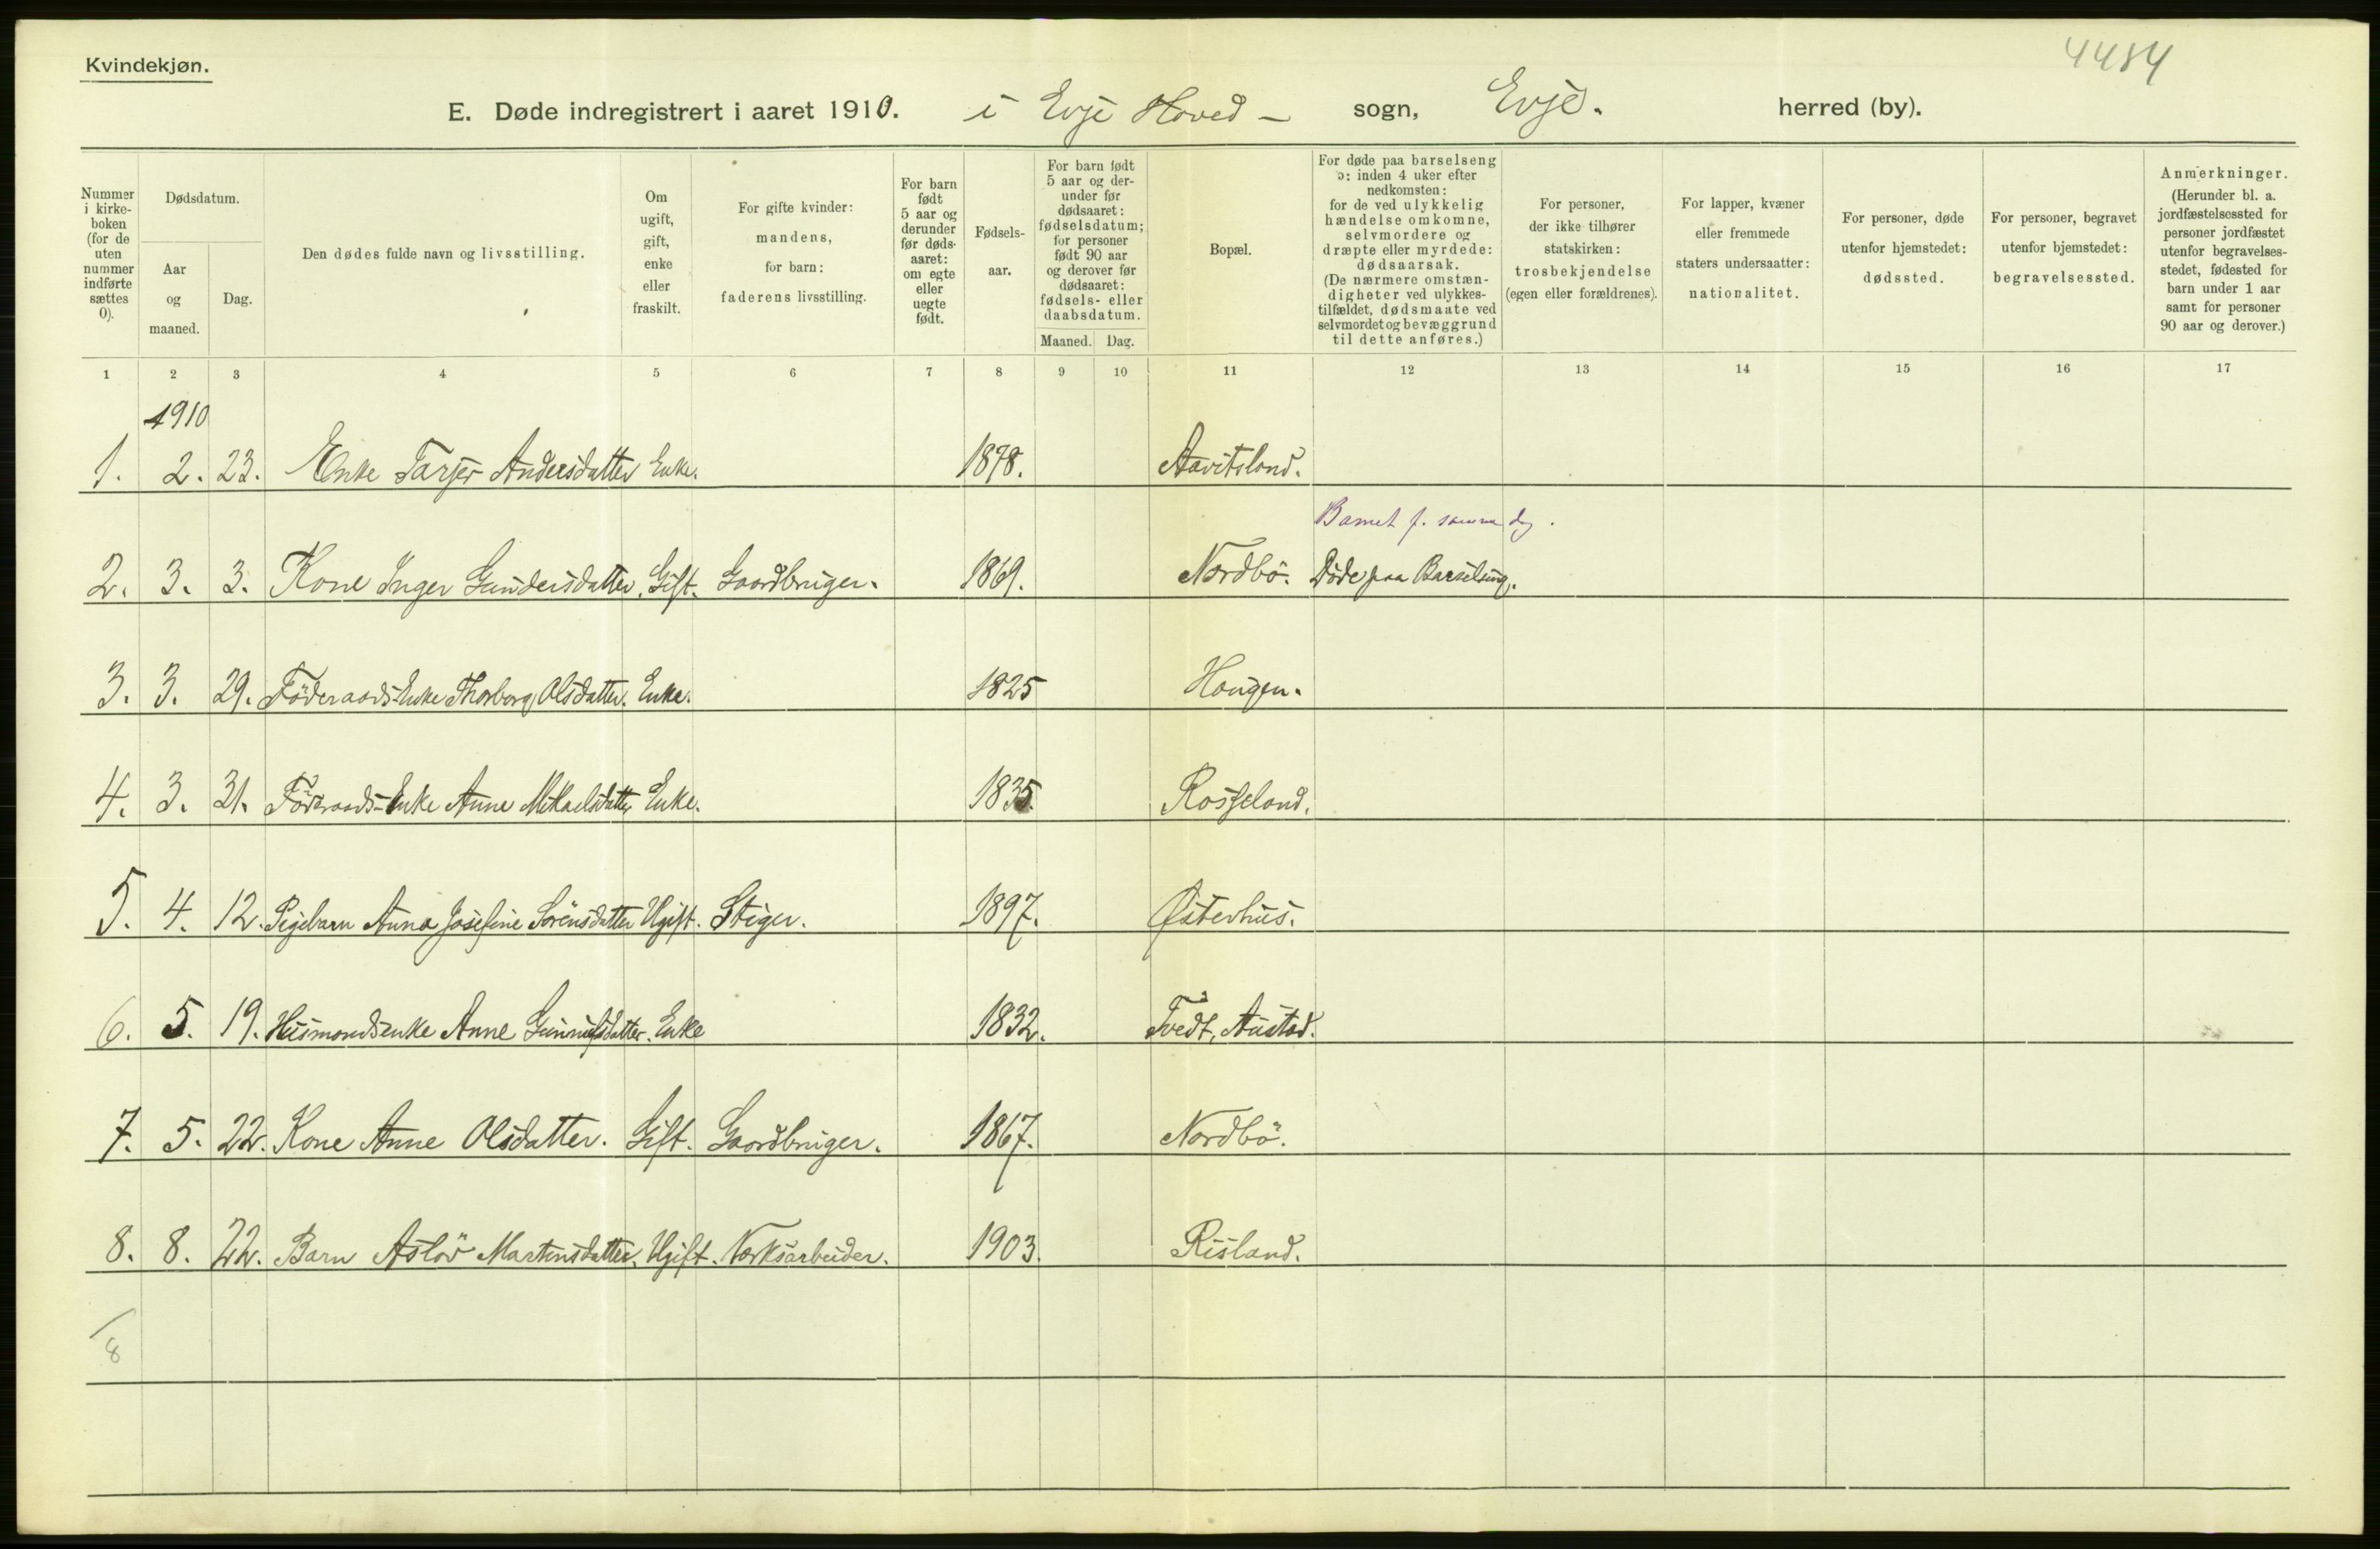 Kvindekjøn.
4484
E. Døde indregistrert i aaret 1910. i Evje Hoved - sogn, Evje. herred (by).
Nummer i kirke-boken (for de uten nummer indførte sættes 0).
Dødsdatum.
Aar og maaned.
Dag.
Den dødes fulde navn og livsstilling.
Om ugift, gift, enke eller fraskilt.
For gifte kvinder: mandens, for barn: faderens livsstilling.
For barn født 5 aar og derunder før døds-aaret: om egte eller uegte født.
Fødsels-aar.
For barn født 5 aar og der-under før dødsaaret: fødselsdatum; for personer født 90 aar og derover før dødsaaret: fødsels- eller daabsdatum.
Maaned. Dag.
Bopæl.
For døde paa barselseng ɔ: inden 4 uker efter nedkomsten: for de ved ulykkelig hændelse omkomne, selvmordere og dræpte eller myrdede: dødsaarsak. (De nærmere omstæn-digheter ved ulykkes-tilfældet, dødsmaate ved selvmordet og bevæggrund til dette anføres.)
For personer, der ikke tilhører statskirken: trosbekjendelse (egen eller forældrenes).
For lapper, kvæner eller fremmede staters undersaatter: nationalitet.
For personer, døde utenfor hjemstedet: dødssted.
For personer, begravet utenfor bjemstedet: begravelsessted.
Anmerkninger. (Herunder bl. a. jordfæstelsessted for personer jordfæstet utenfor begravelses-stedet, fødested for barn under 1 aar samt for personer 90 aar og derover.)
1 2 3 4 5 6 7 8 9 10 11 12 13 14 15 16 17
1910
1. 2. 23. Enke Tarjer Andersdatter Enke. 1878. Aavitsland.
Barnet f. samme dag.
2. 3. 3. Kone Inger Gundersdatter. Gift. Gaardbruger. 1869. Nordbö. Döde paa Barselseng.
3. 3. 29. Föderaads-Enke Thorborg Olsdatter. Enke. 1825 Haugen.
4. 3. 31. Föderaads-Enke Anne Mikaelsdatter Enke. 1835. Rosseland.
5. 4. 12. Pigebarn Anna Josefine Sörensdatter Ugift. Stiger. 1897. Østerhus.
6. 5. 19. Husmandsenke Anne Gunnulfsdatter. Enke 1832. Tvedt, Austad.
7. 5. 22. Kone Anne Olsdatter. Gift. Gaardbruger. 1867. Nordbö.
8. 8. 22. Barn Aslöv Martinsdatter. Ugift. Værksarbeider. 1903. Risland.
8